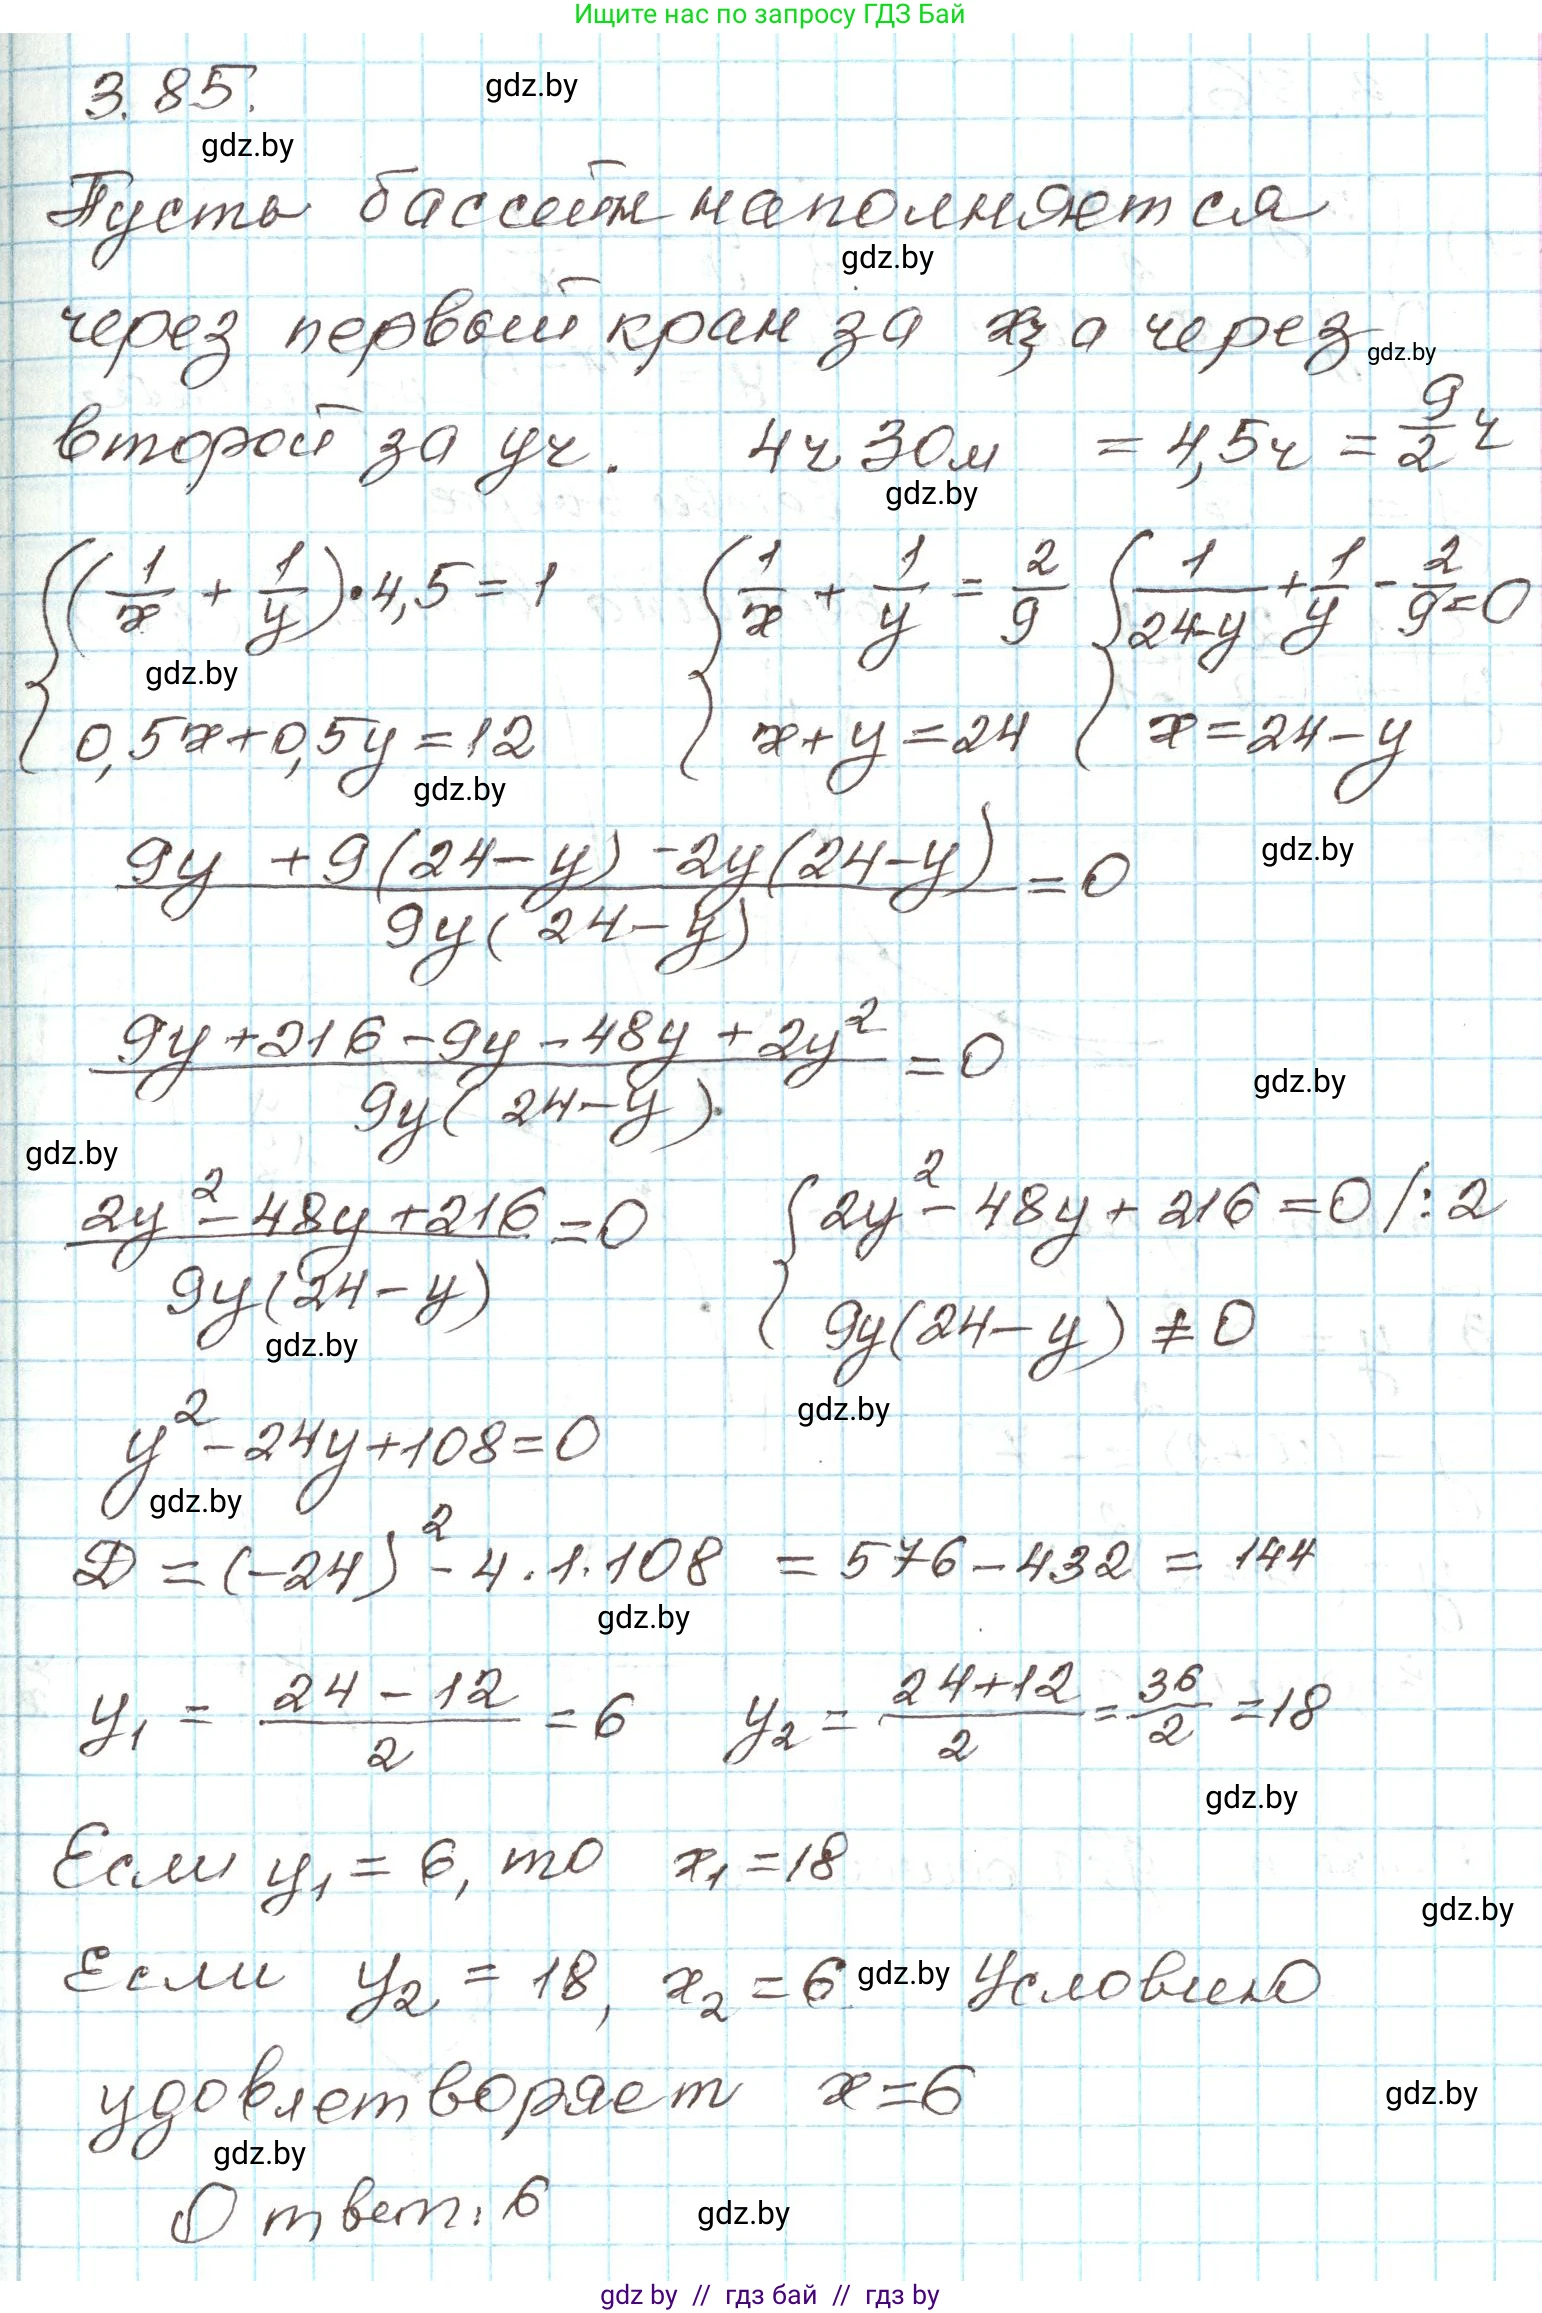 Ищите нас по запросу ГДЗ Бай
3.85.
gdz.by
gdz.by
Пусть бассейн наполняется
gdz.by
через первый кран за xч а через
gdz.by
второй за yч. 4ч 30м = 4,5ч = 9/2 ч
gdz.by
{(1/x + 1/y)·4,5 = 1 {1/x + 1/y = 2/9 {1/(24-y) + 1/y - 2/9 = 0
gdz.by
0,5x+0,5y=12 x+y=24 x=24-y
gdz.by
(9y +9(24-y) -2y(24-y))/(9y(24-y)) = 0
gdz.by
(9y+216-9y-48y+2y²)/(9y(24-y)) = 0
gdz.by
gdz.by
(2y²-48y+216)/(9y(24-y)) = 0 {2y²-48y+216=0 /:2
9y(24-y) ≠ 0
gdz.by
gdz.by
y²-24y+108=0
gdz.by
D = (-24)²-4·1·108 = 576-432 = 144
gdz.by
y₁ = (24-12)/2 = 6 y₂ = (24+12)/2 = 36/2 = 18
gdz.by
Если y₁ = 6, то x₁ = 18
gdz.by
Если y₂ = 18, x₂ = 6 gdz.by Условию
удовлетворяет x=6
gdz.by
gdz.by
Ответ: 6
gdz.by
gdz by // гдз бай // гдз by